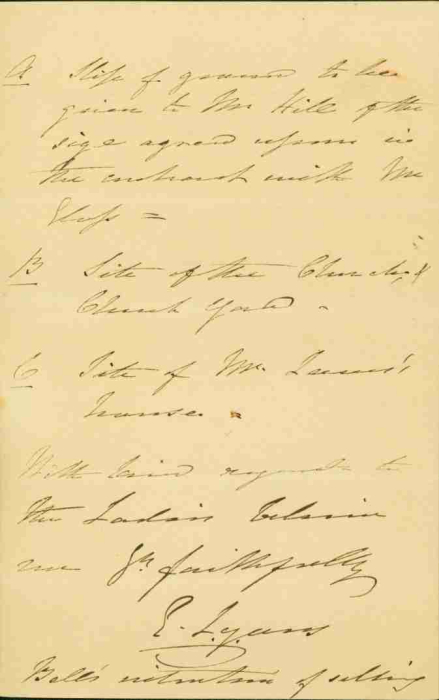 A Slip of ground to be
given to Mr Hill of the
size agreed upon in
the contract with Mr
B Site of the Church, &
Church Yard
C Site of Mr.
house.
With kind regards to
the Ladies believe
me Yrs. faithfully
E. Lyons
Bell's intention of selling